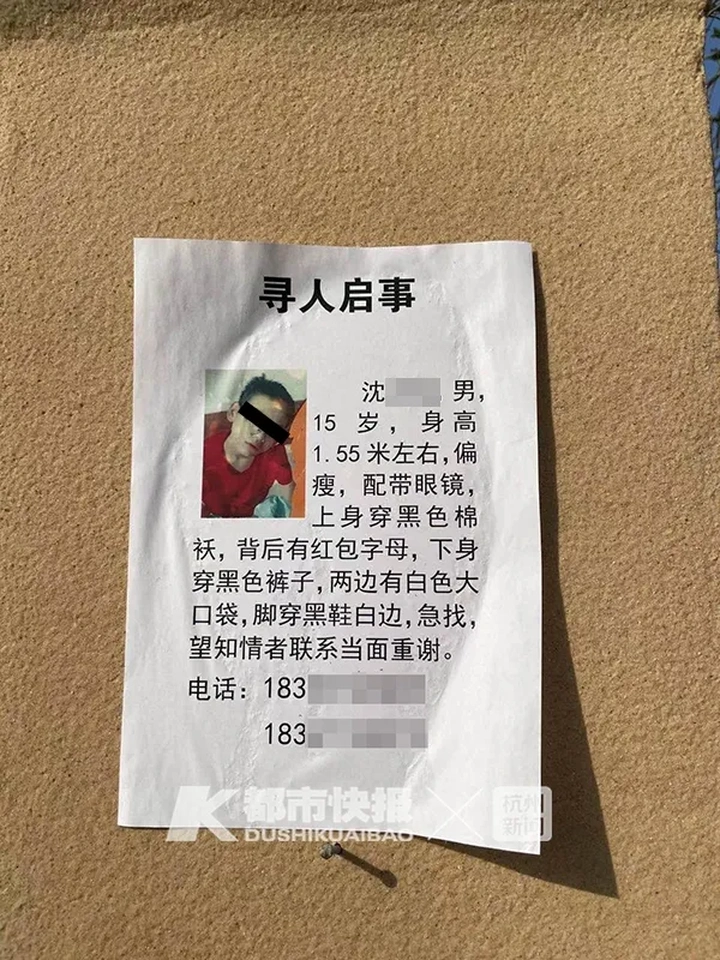 寻人启事
沈 男,
15 岁,身高
1.55 米左右,偏
瘦,配带眼镜,
上身穿黑色棉
袄,背后有红包字母,下身
穿黑色裤子,两边有白色大
口袋,脚穿黑鞋白边,急找,
望知情者联系当面重谢。
电话:183
183
都市快报
DUSHIKUAIBAO
杭州
新闻